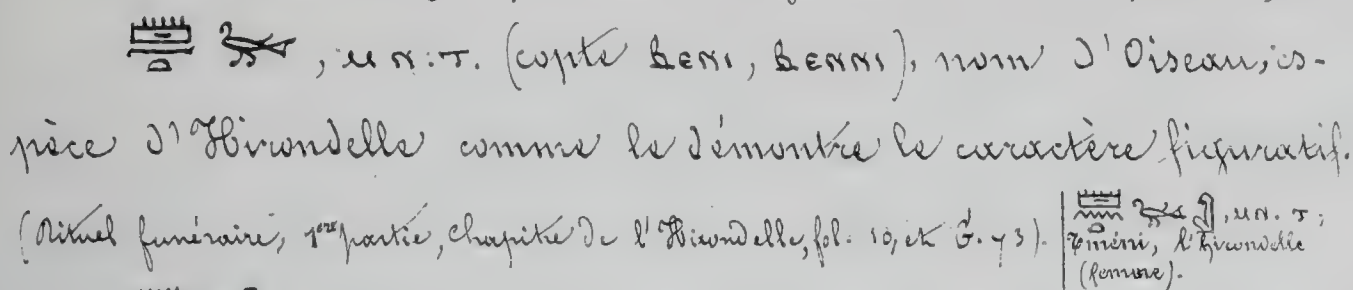 𓏠𓈖𓏏 𓅨, ⲙⲛ:ⲧ. (copte ⲃⲉⲛⲓ, ⲃⲉⲛⲛⲓ), nom d'Oiseau, es-
pèce d'Hirondelle comme le démontre le caractère figuratif.
(Rituel funéraire, 1ère partie, chapitre de l'Hirondelle, fol. 10, et 73). | ⲙⲛ. ⲧ;
l'hirondelle
(femme).